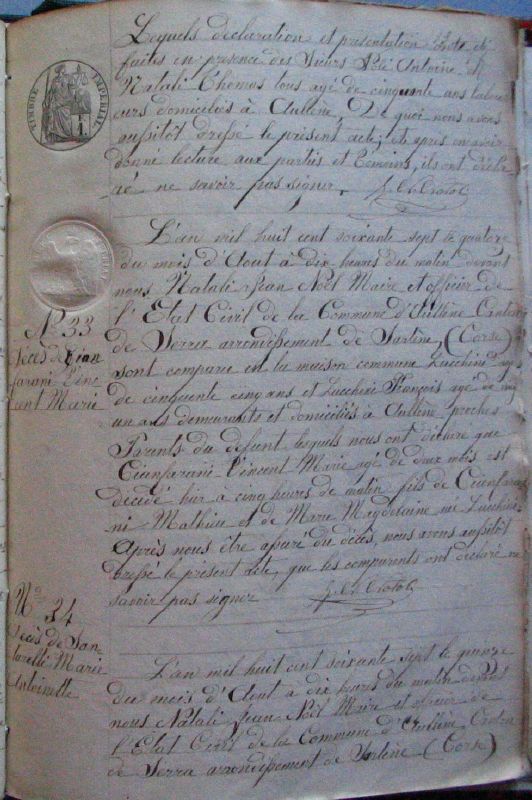 TIMBRE IMPERIAL
Lequels déclaration et présentation
faites en présence des Sieurs Poli Antoine et
Natali Thomas tous agé de cinquante ans labou
eurs domiciliés à Aullène, De quoi nous avons
aussitôt dressé le présent acte, et après en avoir
donné lecture aux parties et témoins, ils ont décla
ré ne savoir pas signer.
L'an mil huit cent soixante sept le quatorze
du mois d'Aout à dix heures du matin devant
nous Natali Jean Noël Maire et officier de
l'Etat Civil de la Commune d'Aullène Canton
de Serra arrondissement de Sartène, (Corse)
sont comparu en la maison commune Lucchini agé
de cinquante cinq ans et Lucchini François agé de
un ans demeurants et domiciliés à Aullène proches
Parents du défunt lesquels nous ont déclaré que
Cianfarani Vincent Marie agé de deux mois est
décédé hier a cinq heures de matin fils de Cianfara
ni Mathieu et de Marie Magdelaine née Lucchini
Après nous être assuré du décès, nous avons aussitôt
dressé le présent acte, que les comparents ont déclaré ne
savoir pas signer
N° 33
Décès de Cian
farani Vin
cent Marie
N° 34
Décès de San
tarelli Marie
Antoinette
L'an mil huit cent soixante sept le quinze
du mois d'Aout a dix heures du matin devant
nous Natali Jean Noël Maire et officier de
l'Etat Civil de la Commune d'Aullène Canton
de Serra arrondissement de Sartène (Corse)